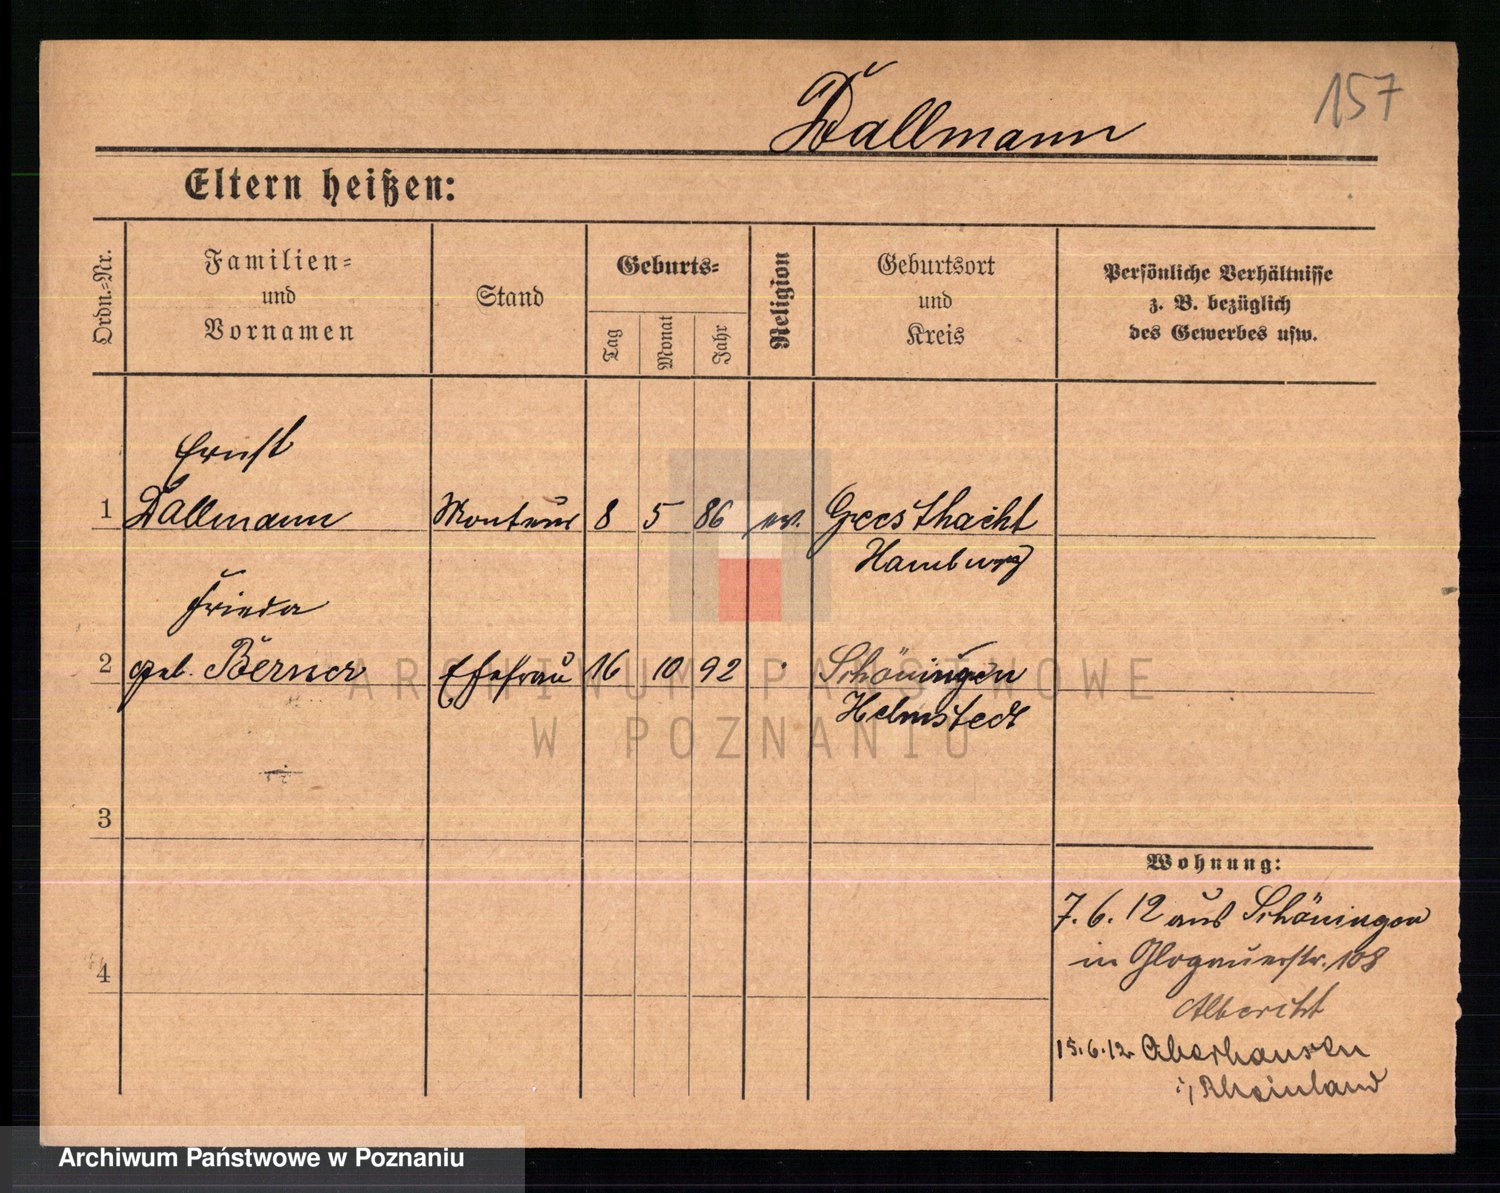 157
Dallmann
Eltern heißen:
Ordn.-Nr.
Familien-
und
Vornamen
Stand
Geburts-
Tag
Monat
Jahr
Religion
Geburtsort
und
Kreis
Persönliche Verhältnisse
z. B. bezüglich
des Gewerbes usw.
Ernst
1 Dallmann Monteur 8 5 86 ev. Geesthacht
Hamburg
Frieda
2 geb. Berner Ehefrau 16 10 92 Schöningen
Helmstedt
3
Wohnung:
7. 6. 12 aus Schöningen
in Glogauerstr. 108
4
Albericht
15. 6. 12. Oberhausen
i/ Rheinland
ARCHIWUM PAŃSTWOWE
W POZNANIU
Archiwum Państwowe w Poznaniu